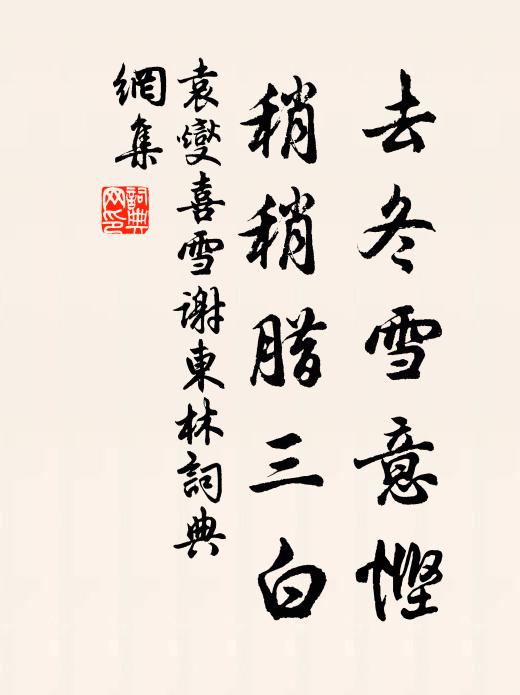 去冬雪意慳
稍稍腊三白
袁燮喜雪谢東林詞典
網集
詞典
网印